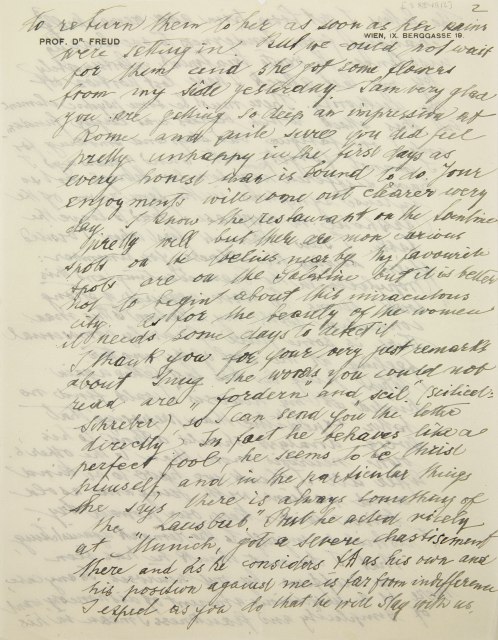 2
to return them to her as soon as her pains
PROF. Dr. FREUD
WIEN, IX. BERGGASSE 19.
were setting in. But we could not wait
for them and she got some flowers
from my side yesterday. I am very glad
you are getting so deep an impression at
Rome and quite sure you did feel
pretty unhappy in the first days as
every honest man is bound to do. Your
enjoyments will come out clearer every
day. I know the restaurant on the
pretty well but there are more
spots on the nearby. My favourite
spots are on the Palatine. But it is better
not to begin about this miraculous
city. As for the beauty of the women
it needs some days to detect it
I thank you for your very just remarks
about Jung. The words you could not
read are "fordern" and "scil" (scilicet:
Schreber) so I can send you the letter
directly. In fact he behaves like a
perfect fool, he seems to be Christ
himself, and in the particular things
he says there is always something of
the "Lausbub". But he acted nicely
at Munich, got a severe chastisement
there and as he considers ΨA as his own and
his position against me is far from indifference
I expect as you do that he will stay with us.